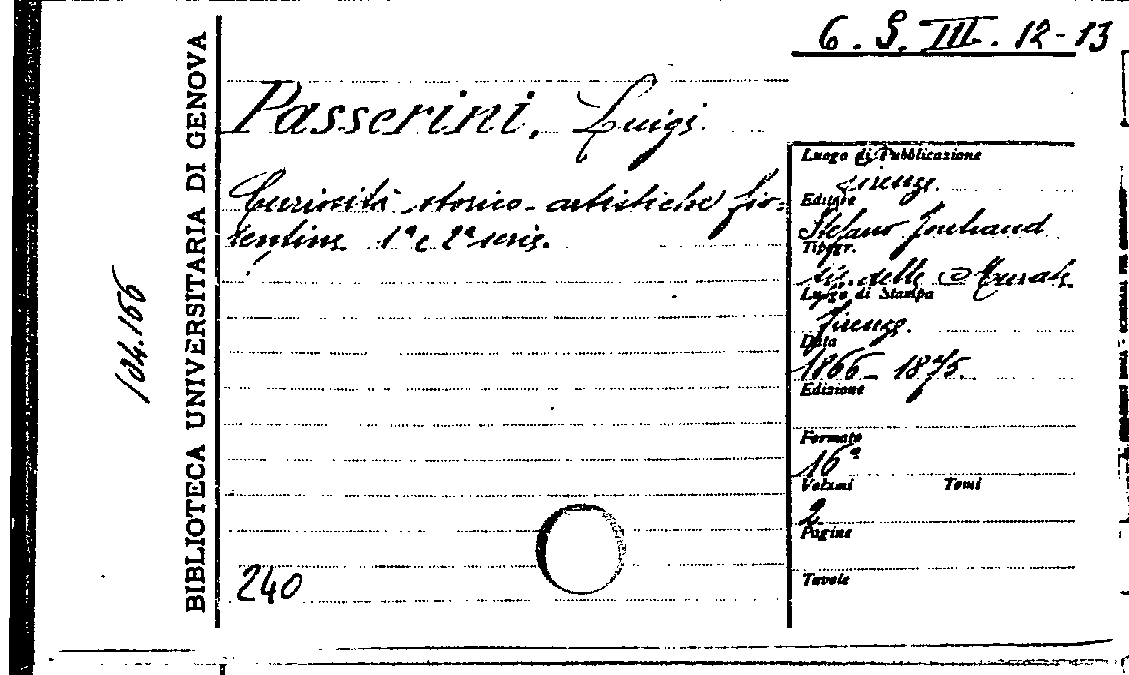 6. S. III. 12-13
Passerini, Luigi
Curiosità storico-artistiche fio-
rentine 1ª e 2ª serie.
240
104.166
BIBLIOTECA UNIVERSITARIA DI GENOVA
Luogo di Pubblicazione
Firenze
Editore
Stefano Jouhaud
Tipogr.
delle Murate
Luogo di Stampa
Firenze
Data
1866-1875
Edizione
Formato
16°
Volumi Tomi
2
Pagine
Tavole